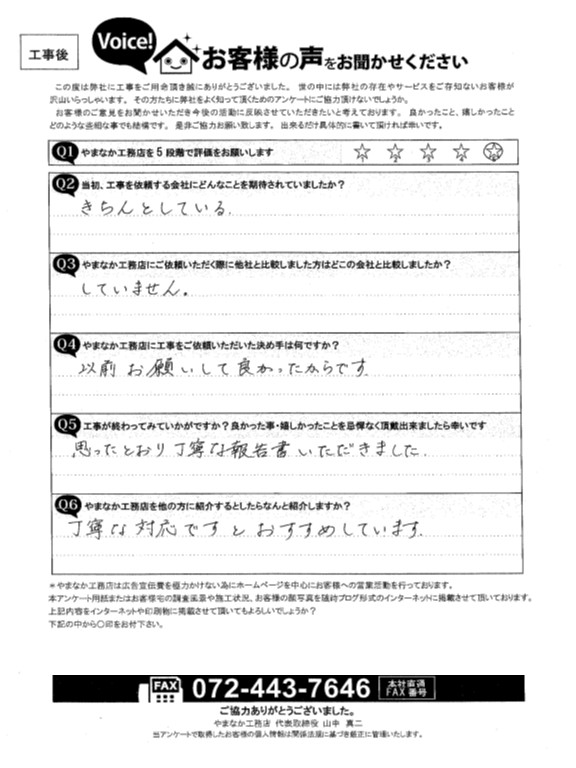 工事後
Voice!
お客様の声をお聞かせください
この度は弊社に工事をご用命頂き誠にありがとうございました。 世の中には弊社の存在やサービスをご存知ないお客様が
沢山いらっしゃいます。 その方たちに弊社をよく知って頂くためのアンケートにご協力頂けないでしょうか。
お客様のご意見をお聞かせいただき今後の活動に反映させていただきたいと考えております。 良かったこと、嬉しかったこと
どのような些細な事でも結構です。 是非ご協力お願い致します。 出来るだけ具体的に書いて頂ければ幸いです。
Q1 やまなか工務店を5段階で評価をお願いします
Q2 当初、工事を依頼する会社にどんなことを期待されていましたか？
きちんとしている。
Q3 やまなか工務店にご依頼いただく際に他社と比較しました方はどこの会社と比較しましたか？
していません。
Q4 やまなか工務店に工事をご依頼いただいた決め手は何ですか？
以前お願いして良かったからです。
Q5 工事が終わってみていかがですか？良かった事・嬉しかったことを忌憚なく頂戴出来ましたら幸いです
思ったとおり丁寧な報告書いただきました。
Q6 やまなか工務店を他の方に紹介するとしたらなんと紹介しますか？
丁寧な対応ですとおすすめしています。
＊やまなか工務店は広告宣伝費を極力かけない為にホームページを中心にお客様への営業活動を行っております。
本アンケート用紙またはお客様宅の調査風景や施工状況、お客様の顔写真を随時ブログ形式のインターネットに掲載させて頂いております。
上記内容をインターネットや印刷物に掲載させて頂いてもよろしいでしょうか？
下記の中から〇印をお付下さい。
FAX 072-443-7646 本社直通 FAX番号
ご協力ありがとうございました。
やまなか工務店 代表取締役 山中 真二
当アンケートで取得したお客様の個人情報は関係法規に基づき厳正に管理いたします。